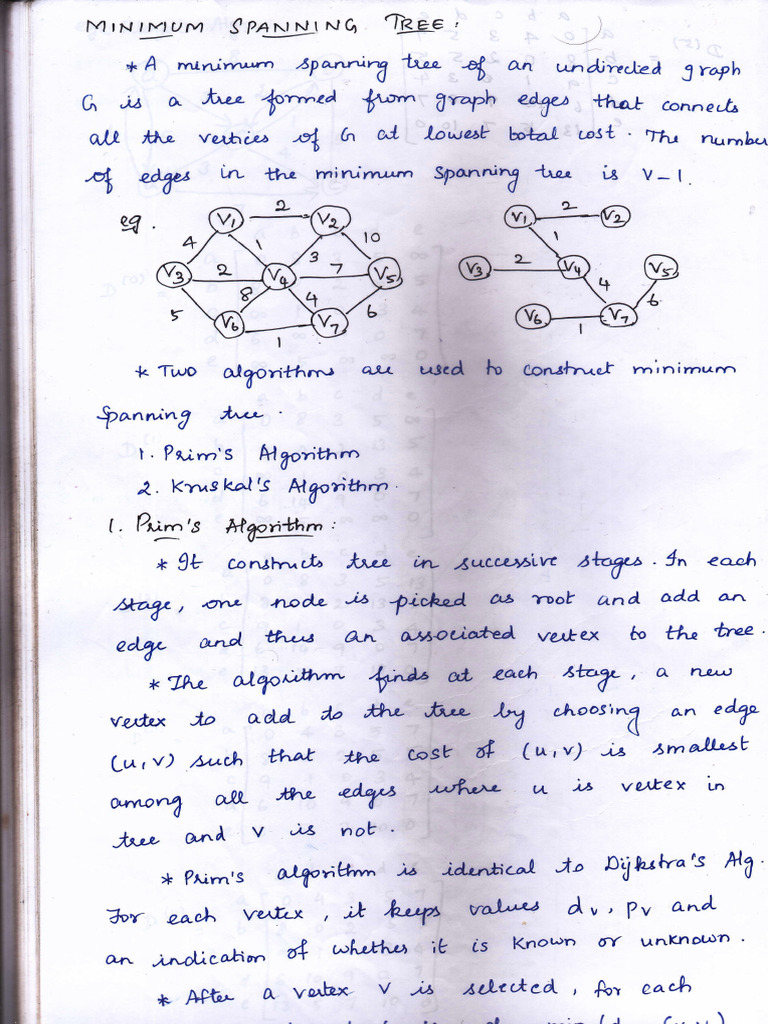 MINIMUM SPANNING TREE:
* A minimum spanning tree of an undirected graph
G is a tree formed from graph edges that connects
all the vertices of G at lowest total cost. The number
of edges in the minimum spanning tree is V-1.
eg.
V1 2 V2 V1 2 V2
4 1 3 10 1
V3 2 V4 7 V5 V3 2 V4 V5
5 8 4 6 4 6
V6 1 V7 V6 1 V7
* Two algorithms are used to construct minimum
Spanning tree.
1. Prim's Algorithm
2. Kruskal's Algorithm.
1. Prim's Algorithm:
* It constructs tree in successive stages. In each
stage, one node is picked as root and add an
edge and thus an associated vertex to the tree.
* The algorithm finds at each stage, a new
vertex to add to the tree by choosing an edge
(u,v) such that the cost of (u,v) is smallest
among all the edges where u is vertex in
tree and v is not.
* Prim's algorithm is identical to Dijkstra's Alg.
For each vertex, it keeps values dv, pv and
an indication of whether it is known or unknown.
* After a vertex v is selected, for each